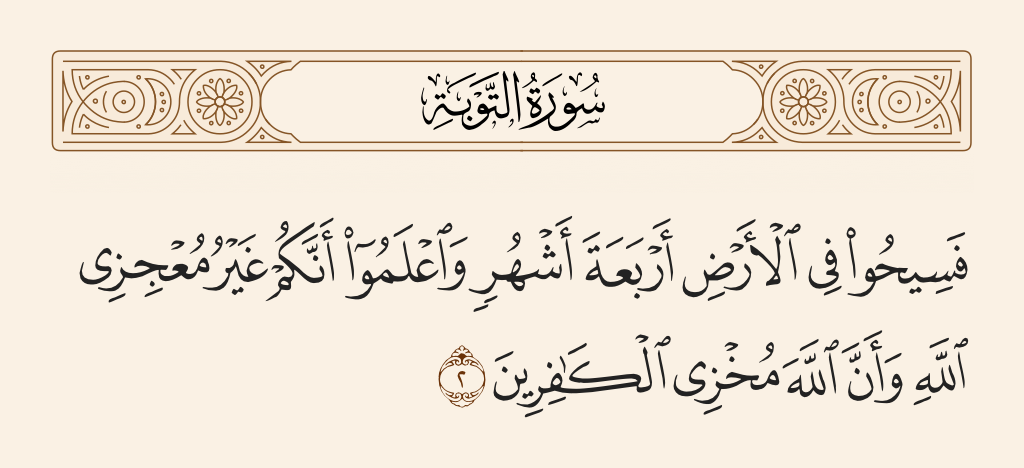 سُورَةُ التَّوْبَةِ
فَسِيحُوا۟ فِى ٱلْأَرْضِ أَرْبَعَةَ أَشْهُرٍ وَٱعْلَمُوٓا۟ أَنَّكُمْ غَيْرُ مُعْجِزِى
ٱللَّهِ وَأَنَّ ٱللَّهَ مُخْزِى ٱلْكَـٰفِرِينَ ٢